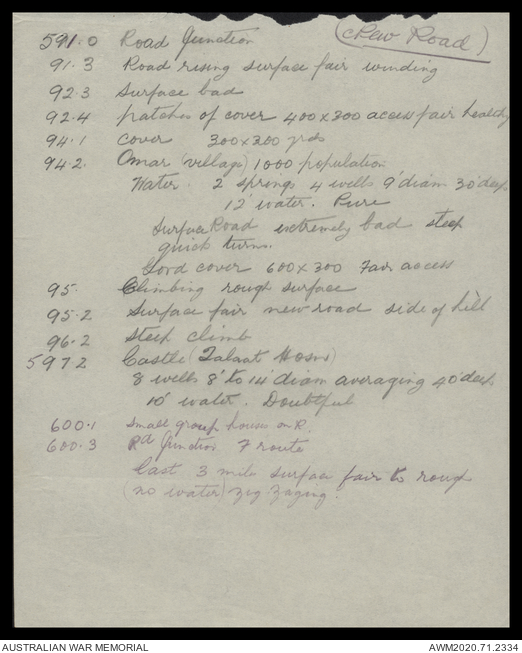 (New Road)
591.0 Road Junction
91.3 Road rising surface fair winding
92.3 Surface bad
92.4 patches of cover 400x300 access fair healthy
94.1 cover 300x200 yds
94.2. Omar (village) 1000 population
Water. 2 springs 4 wells 9' diam 30' deep
12' water. Pure
Surface Road extremely bad steep
quick turns.
Good cover 600x300 Fair access
95. Climbing rough surface
95.2 Surface fair new road side of hill
96.2 steep climb
597.2 Castle (Talaat Hosn)
8 wells 8' to 14' diam averaging 40' deep
10' water. Doubtful
600.1 Small group houses on R.
600.3 Rd Junction 7 route
Last 3 mile surface fair to rough
(no water) zig-zaging.
AUSTRALIAN WAR MEMORIAL
AWM2020.71.2334